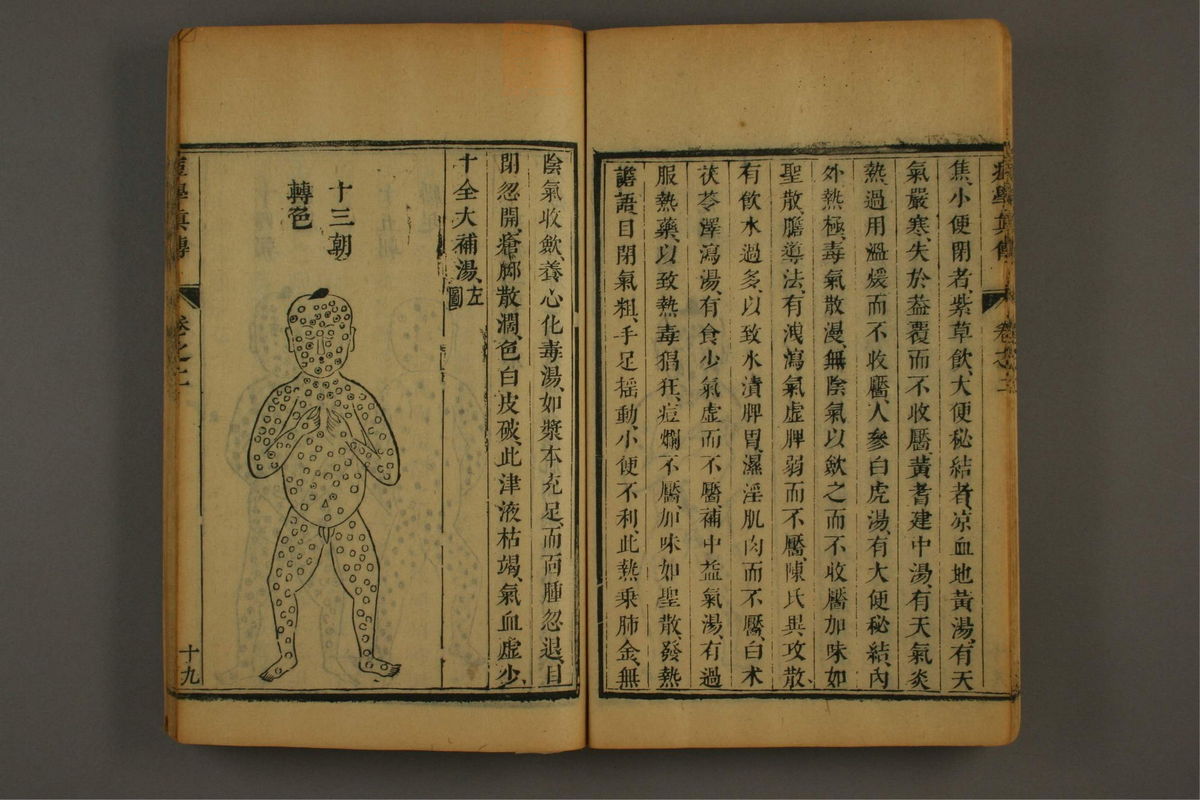 焦、小便閉者、紫草飲、大便秘結者、凉血地黃湯、有天
氣嚴寒、失於葢覆而不收靨、黃耆建中湯、有天氣炎
熱、過用溫煖而不收靨、人參白虎湯、有大便秘結、內
外熱極、毒氣散漫、無陰氣以歛之而不收靨、加味如
聖散、膽導法、有洩瀉氣虛脾弱而不靨、陳氏異攻散、
有飲水過多、以致水漬脾胃、濕淫肌肉而不靨、白术
茯苓澤瀉湯、有食少氣虛而不靨、補中益氣湯、有過
服熱藥、以致熱毒猖狂、痘爛不靨、加味如聖散、發熱
譫語、目閉氣粗、手足搖動、小便不利、此熱乗肺金、無
陰氣收歛、養心化毒湯、如漿本充足、而面腫忽退、目
閉忽開、瘡脚散濶、色白皮破、此津液枯竭、氣血虛少、
十全大補湯、左圖
十三朝
轉色
痘學眞傳
卷之二
十九